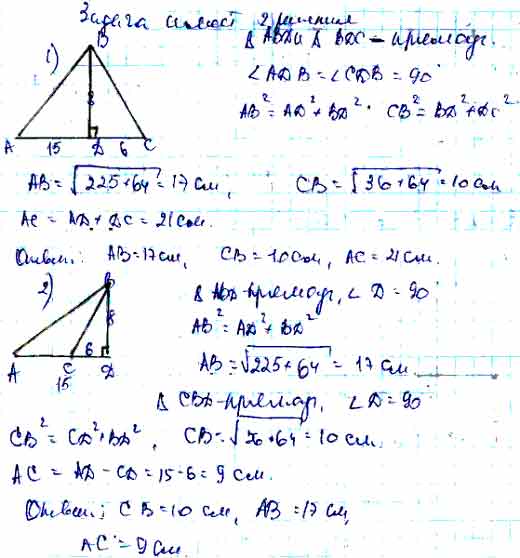 Задача имеет 2 решения
1)
Δ ABD и Δ BDC – прямоуг.
∠ADB = ∠CDB = 90°
AB² = AD² + BD². CB² = BD² + DC²
B
8
A 15 D 6 C
AB = √225+64 = 17 см, CB = √36+64 = 10 см
AC = AD + DC = 21 см.
Ответ: AB = 17 см, CB = 10 см, AC = 21 см.
2)
B
8
6
A C D
15
Δ ABD – прямоуг, ∠D = 90°
AB² = AD² + BD²
AB = √225+64 = 17 см
Δ CBD – прямоуг, ∠D = 90°
CB² = CD² + BD², CB = √36+64 = 10 см.
AC = AD – CD = 15-6 = 9 см.
Ответ: CB = 10 см, AB = 17 см,
AC = 9 см